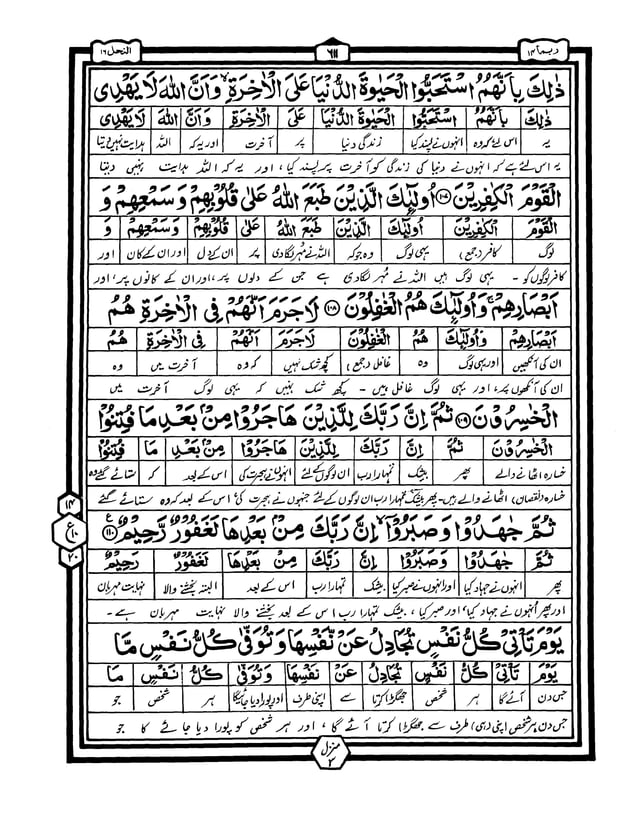 النحل ١٦
ربما ١٤
ذٰلِكَ بِاَنَّهُمُ اسْتَحَبُّوا الْحَيٰوةَ الدُّنْيَا عَلَى الْاٰخِرَةِ ۙ وَاَنَّ اللّٰهَ لَا يَهْدِى
ذٰلِكَ بِاَنَّهُمُ اسْتَحَبُّوا الْحَيٰوةَ الدُّنْيَا عَلَى الْاٰخِرَةِ وَاَنَّ اللّٰهَ لَا يَهْدِى
یہ اس لئے کہ وہ انہوں نے پسند کیا زندگی دنیا پر آخرت اور یہ کہ اللہ ہدایت نہیں دیتا
یہ اس لئے ہے کہ انہوں نے دنیا کی زندگی کو آخرت پر پسند کیا ، اور یہ کہ اللہ ہدایت نہیں دیتا
الْقَوْمَ الْكٰفِرِيْنَ ١٠٧ اُولٰٓئِكَ الَّذِيْنَ طَبَعَ اللّٰهُ عَلٰى قُلُوْبِهِمْ وَسَمْعِهِمْ وَ
الْقَوْمَ الْكٰفِرِيْنَ اُولٰٓئِكَ الَّذِيْنَ طَبَعَ اللّٰهُ عَلٰى قُلُوْبِهِمْ وَسَمْعِهِمْ وَ
لوگ کافر (جمع) یہی لوگ وہ جو کہ اللہ نے مہر لگادی پر ان کے دل اور ان کے کان اور
کافر لوگوں کو ۔ یہی لوگ ہیں اللہ نے مُہر لگادی ہے جن کے دلوں پر، اور ان کے کانوں پر، اور
اَبْصَارِهِمْ ۚ وَاُولٰٓئِكَ هُمُ الْغٰفِلُوْنَ ١٠٨ لَا جَرَمَ اَنَّهُمْ فِى الْاٰخِرَةِ هُمُ
اَبْصَارِهِمْ وَاُولٰٓئِكَ هُمُ الْغٰفِلُوْنَ لَا جَرَمَ اَنَّهُمْ فِى الْاٰخِرَةِ هُمُ
ان کی آنکھیں اور یہی لوگ وہ غافل (جمع) کچھ شک نہیں کہ وہ آخرت میں وہ
ان کی آنکھوں پر، اور یہی لوگ غافل ہیں ۔ کچھ شک نہیں کہ یہی لوگ آخرت میں
الْخٰسِرُوْنَ ١٠٩ ثُمَّ اِنَّ رَبَّكَ لِلَّذِيْنَ هَاجَرُوْا مِنْۢ بَعْدِ مَا فُتِنُوْا
الْخٰسِرُوْنَ ثُمَّ اِنَّ رَبَّكَ لِلَّذِيْنَ هَاجَرُوْا مِنْۢ بَعْدِ مَا فُتِنُوْا
خسارہ اٹھانے والے پھر بیشک تمہارا رب ان لوگوں کے لئے انہوں نے ہجرت کی اس کے بعد کہ ستائے گئے وہ
خسارہ (نقصان) اٹھانے والے ہیں۔ پھر بیشک تمہارا رب ان لوگوں کے لئے جنہوں نے ہجرت کی اس کے بعد کہ وہ ستائے گئے
ثُمَّ جٰهَدُوْا وَصَبَرُوْۤا ۙ اِنَّ رَبَّكَ مِنْۢ بَعْدِهَا لَغَفُوْرٌ رَّحِيْمٌ ١١٠
ثُمَّ جٰهَدُوْا وَصَبَرُوْۤا اِنَّ رَبَّكَ مِنْۢ بَعْدِهَا لَغَفُوْرٌ رَّحِيْمٌ
پھر انہوں نے جہاد کیا اور انہوں نے صبر کیا بیشک تمہارا رب اس کے بعد البتہ بخشنے والا نہایت مہربان
اور پھر اُنہوں نے جہاد کیا، اور صبر کیا ، بیشک تمہارا رب اس کے بعد بخشنے والا نہایت مہربان ہے ۔
١٤
ع
١٠
٢٠
يَوْمَ تَاْتِىْ كُلُّ نَفْسٍ تُجَادِلُ عَنْ نَّفْسِهَا وَتُوَفّٰى كُلُّ نَفْسٍ مَّا
يَوْمَ تَاْتِىْ كُلُّ نَفْسٍ تُجَادِلُ عَنْ نَّفْسِهَا وَتُوَفّٰى كُلُّ نَفْسٍ مَّا
جس دن آئے گا ہر شخص جھگڑا کرتا سے اپنی طرف اور پورا دیا جائیگا ہر شخص جو
جس دن ہر شخص اپنی (ہی) طرف سے جھگڑا کرتا آئے گا ، اور ہر شخص کو پورا دیا جائے گا جو
منزل
٣